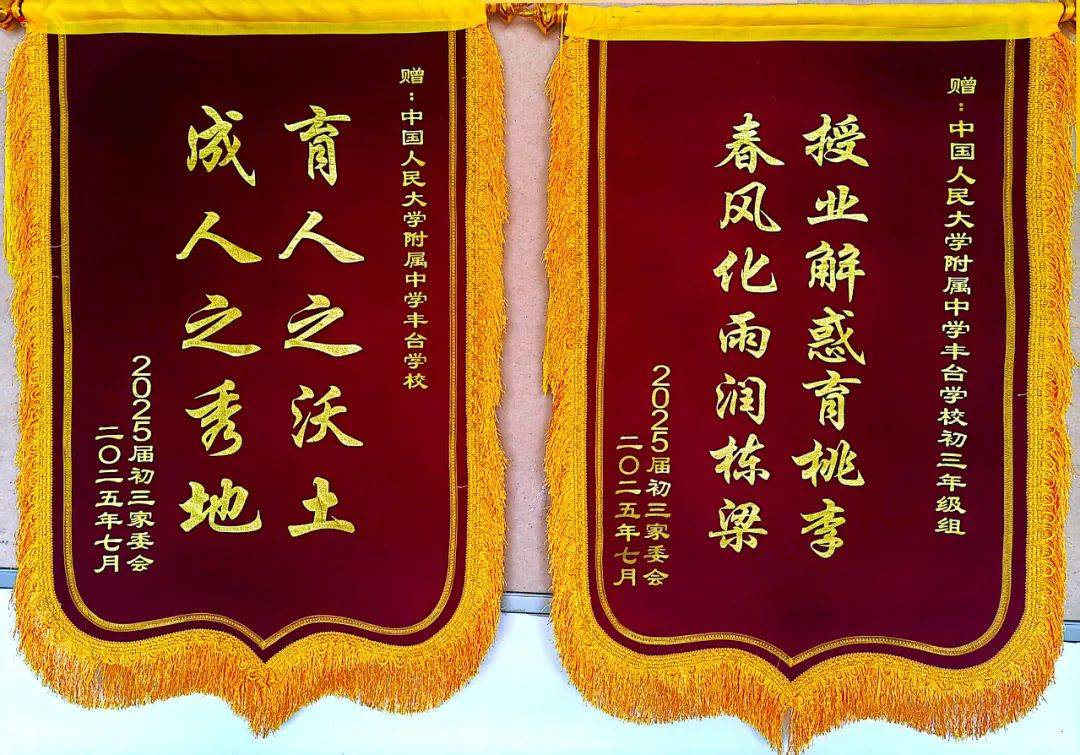 赠：中国人民大学附属中学丰台学校
育人之沃土
成人之秀地
2025届初三家委会
二〇二五年七月
赠：中国人民大学附属中学丰台学校初三年级组
授业解惑育桃李
春风化雨润栋梁
2025届初三家委会
二〇二五年七月